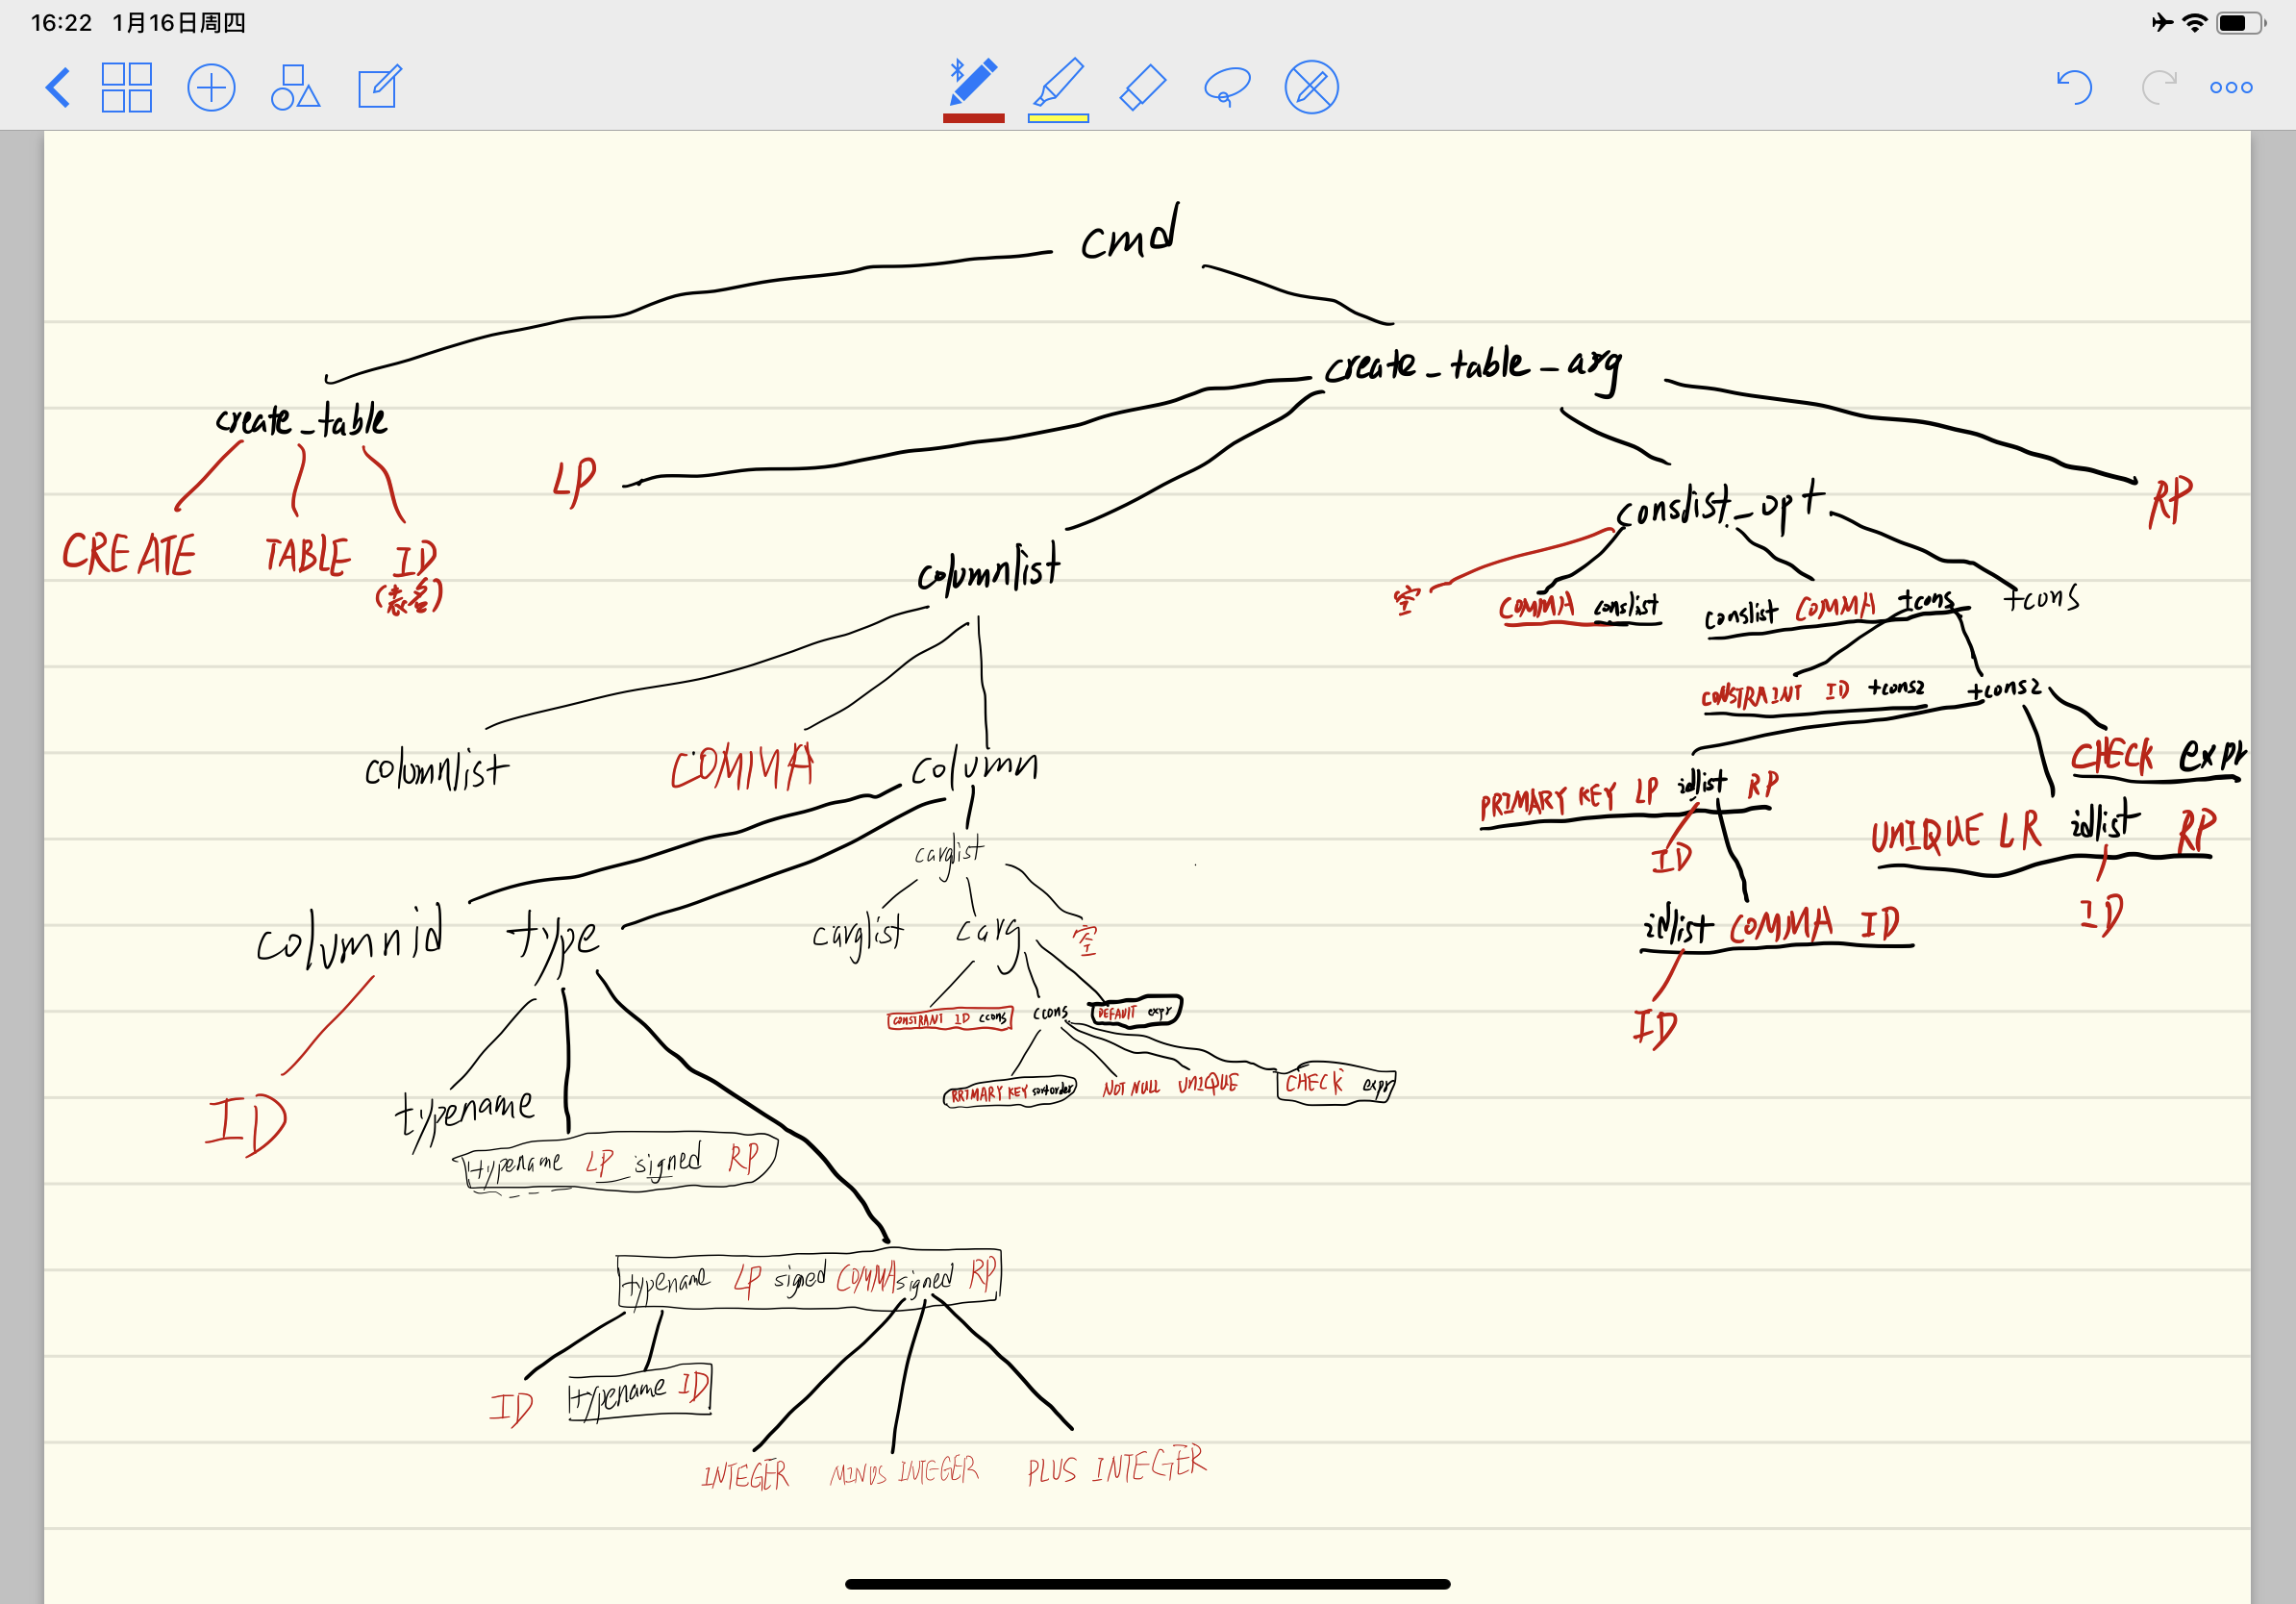 16:22 1月16日周四
cmd
create_table_arg
create_table
LP
conslist_opt
RP
CREATE TABLE ID
(表名)
columnlist
空
COMMA conslist
conslist COMMA tcons
tcons
CONSTRAINT ID tcons2
tcons2
columnlist COMMA column
CHECK expr
PRIMARY KEY LP idlist RP
UNIQUE LR idlist RP
ID
ID
carglist
columnid type
carglist carg 空
idlist COMMA ID
ID
CONSTRANT ID ccons
ccons
DEFAULT expr
PRIMARY KEY sortorder
NOT NULL UNIQUE
CHECK expr
ID
typename
typename LP signed RP
typename LP signed COMMA signed RP
ID
typename ID
INTEGER MINUS INTEGER PLUS INTEGER